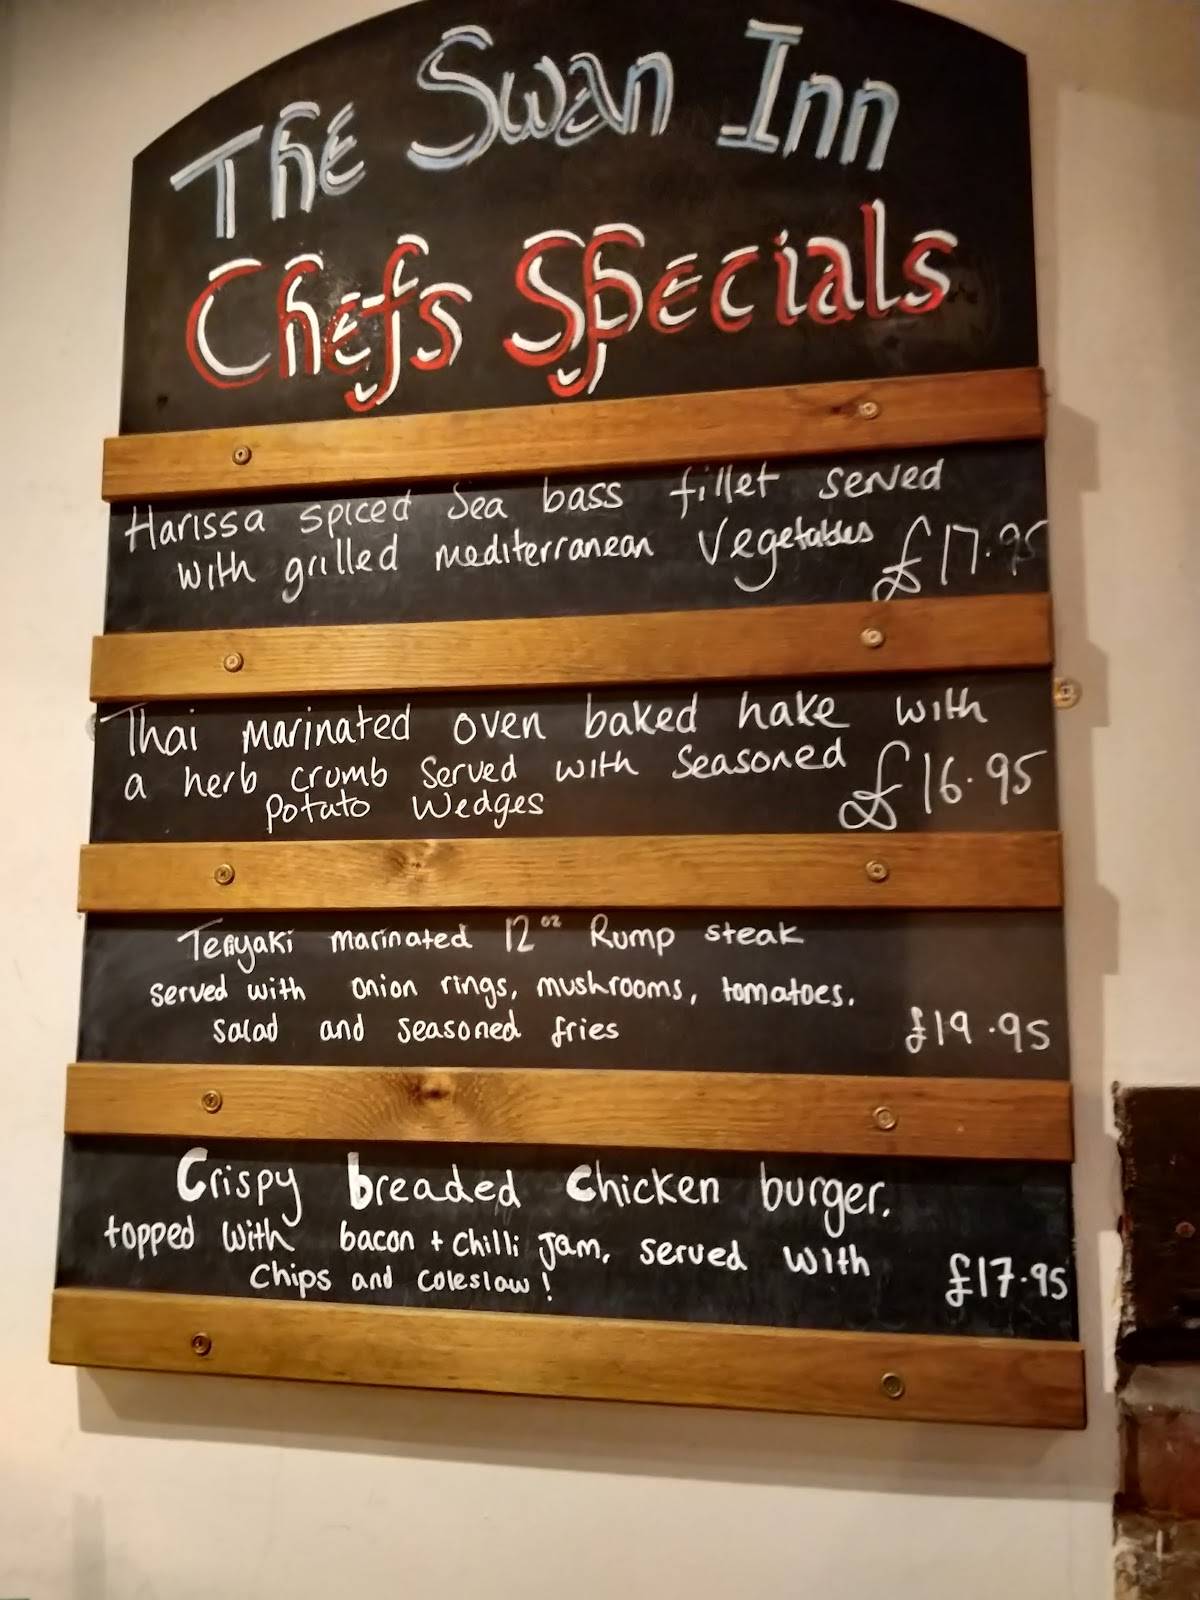 The Swan Inn
Chefs Specials
Harissa spiced Sea bass fillet served
with grilled mediterranean Vegetables £17.95
Thai marinated oven baked hake with
a herb crumb Served with Seasoned £16.95
Potato Wedges
Teriyaki marinated 12oz Rump steak
served with onion rings, mushrooms, tomatoes.
salad and seasoned fries £19.95
Crispy breaded Chicken burger.
topped with bacon + chilli Jam, served with
chips and coleslaw! £17.95